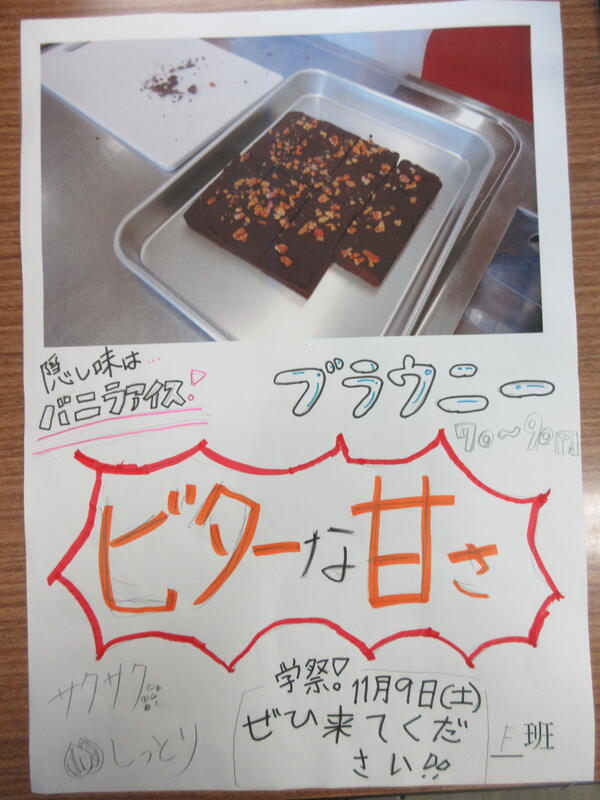 隠し味は…
バニラアイス!
ブラウニー
70～90円
ビターな甘さ
サクサク
しっとり
学祭!
11月9日(土)
ぜひ来てくだ
さい!!
F班